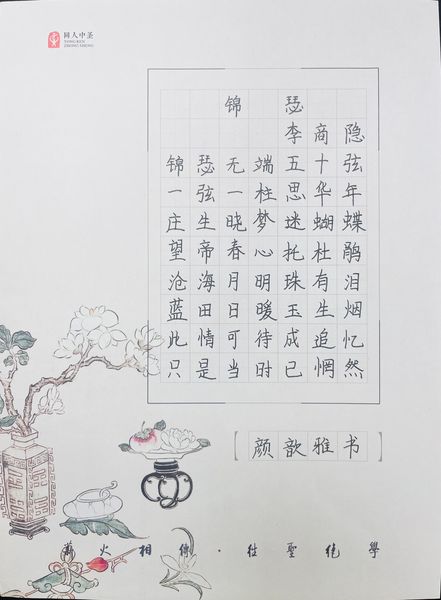 同人中圣
TONG REN
ZHONG SHENG
锦瑟
李商隐
锦瑟无端五十弦
一弦一柱思华年
庄生晓梦迷蝴蝶
望帝春心托杜鹃
沧海月明珠有泪
蓝田日暖玉生烟
此情可待成追忆
只是当时已惘然
颜歆雅书
薪火相傳·往聖絕學